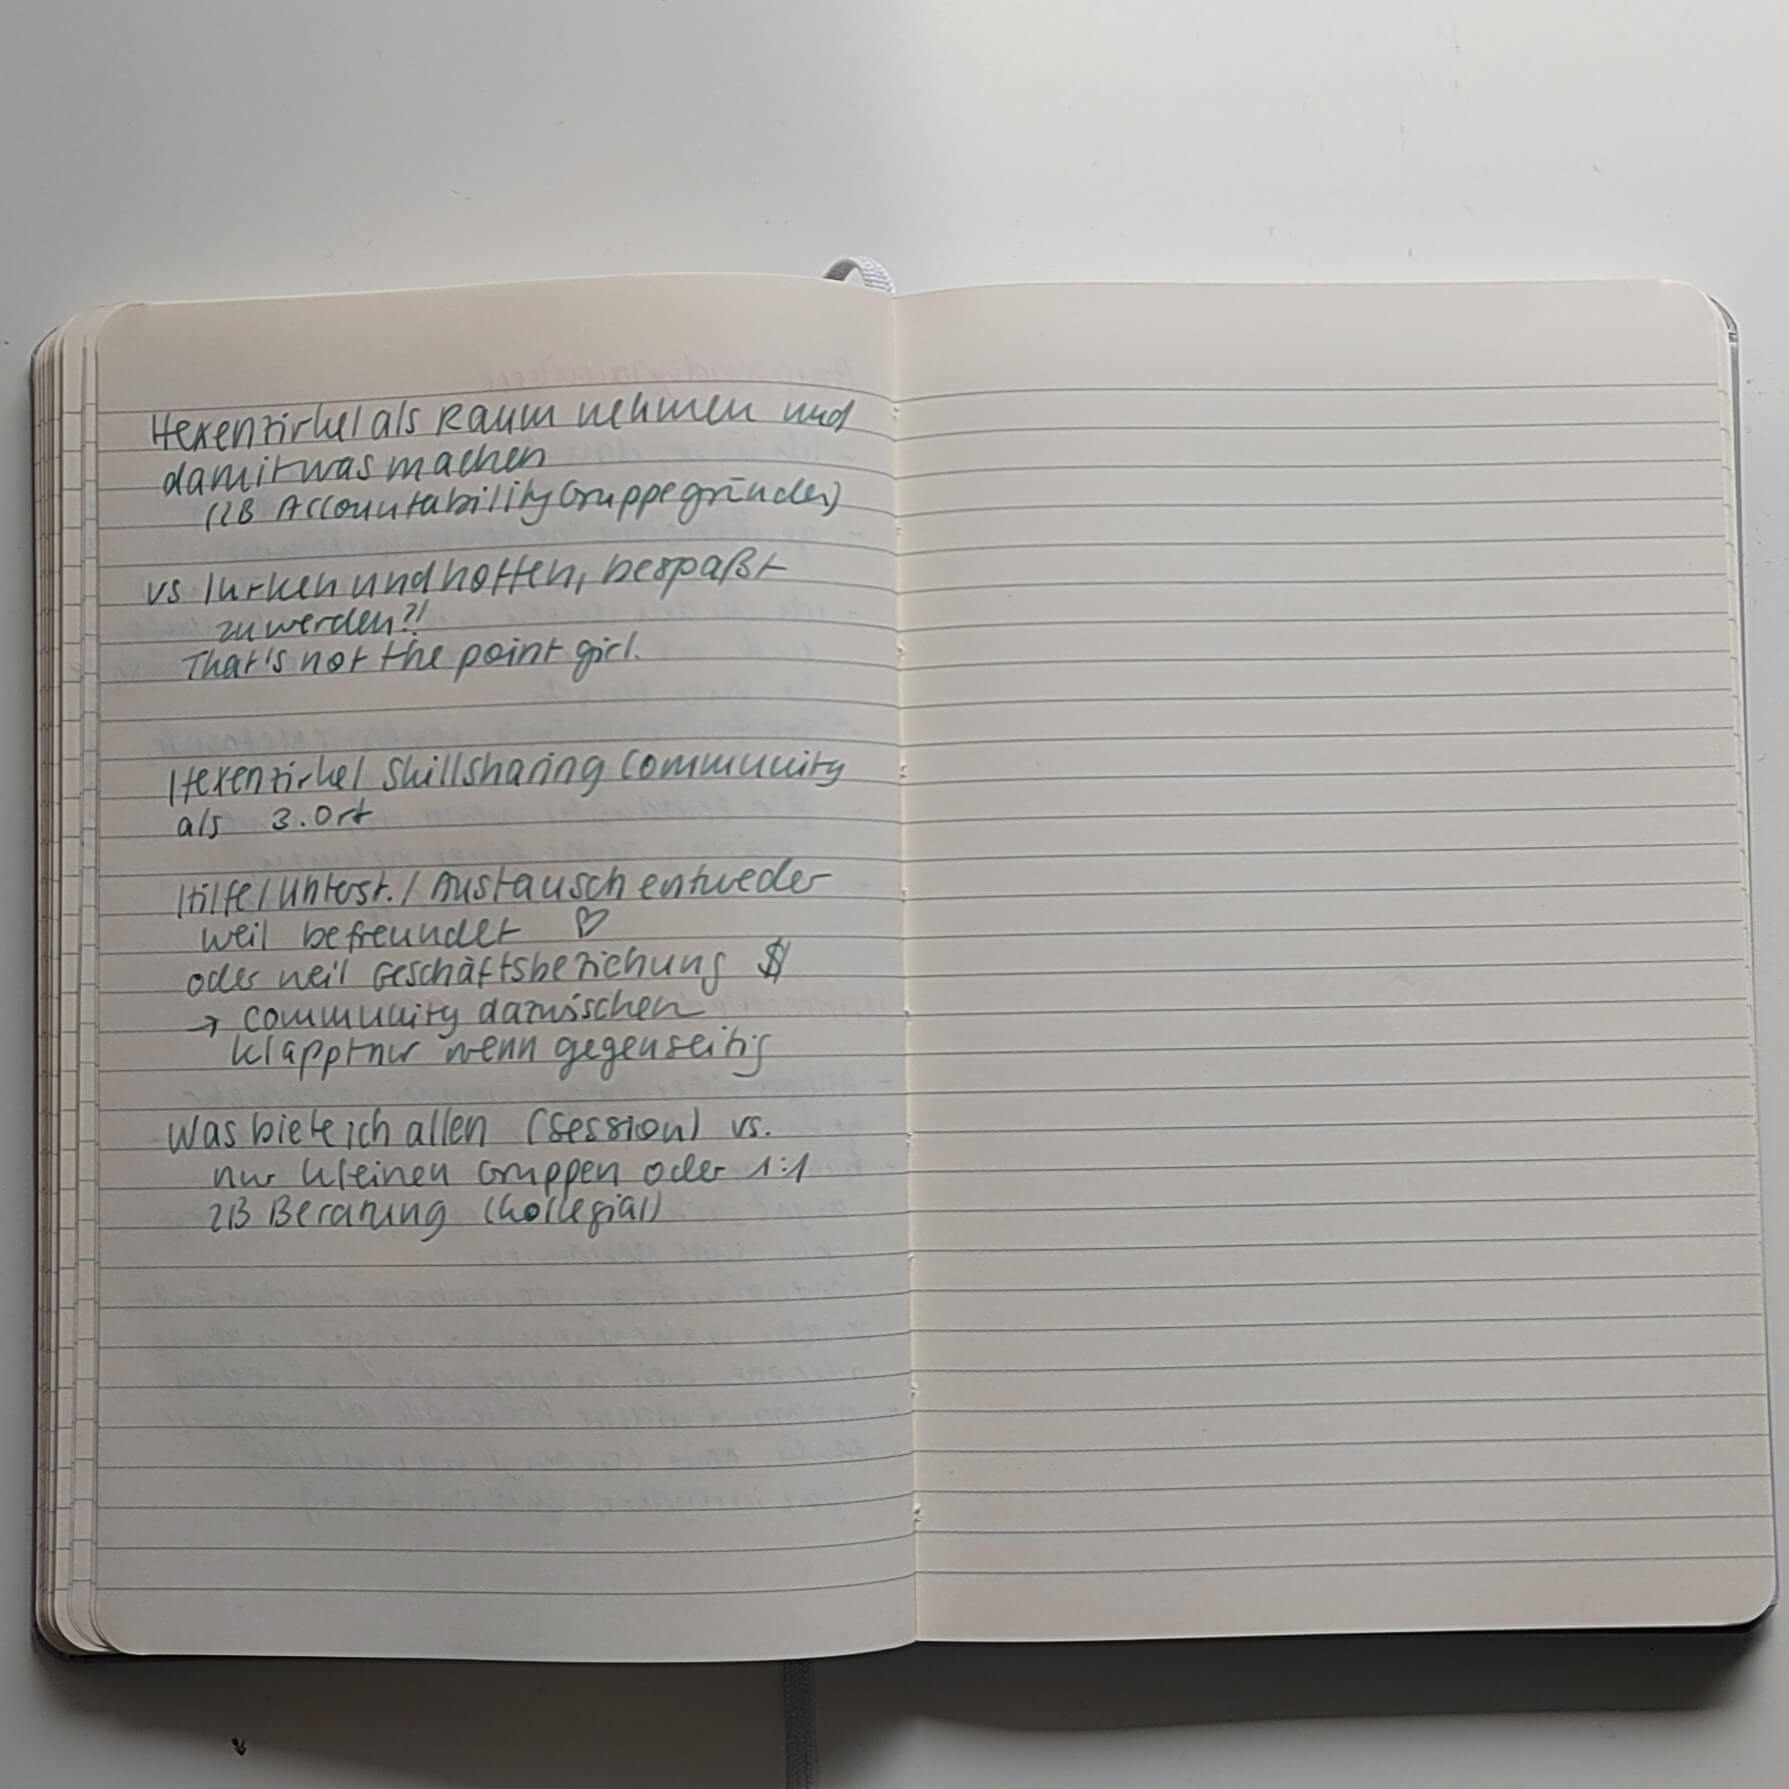 Hexenzirkel als Raum nehmen und
damit was machen
(ZB Accountability Gruppe gründen)
vs lurken und hoffen, bespaßt
zu werden?!
That's not the point girl.
Hexenzirkel Skillsharing Community
als 3. Ort
Hilfe/Unterst./Austausch entweder
weil befreundet ♡
oder weil Geschäftsbeziehung $
→ Community dazwischen
klappt nur wenn gegenseitig
Was biete ich allen (Session) vs.
nur kleinen Gruppen oder 1:1
ZB Beratung (kollegial)